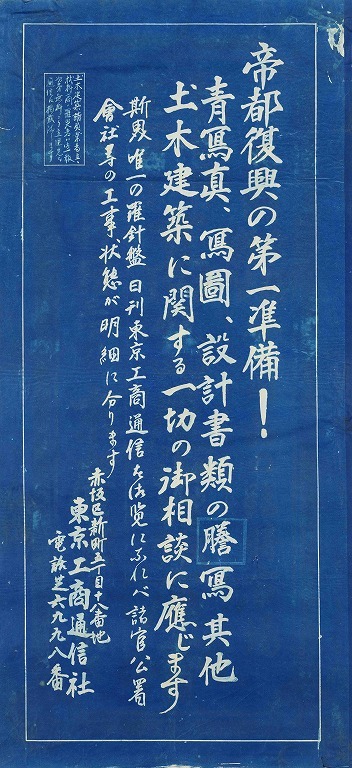 帝都復興の第一準備！
青寫真、寫圖、設計書類の謄寫其他
土木建築に関する一切の御相談に應じます
斯界唯一の羅針盤日刊東京工商通信を御覧になれば諸官公署
會社等の工事、状態が明細に分ります
赤坂区新町五丁目十八番地
東京工商通信社
電話芝六九九八番
土木建築請負業者